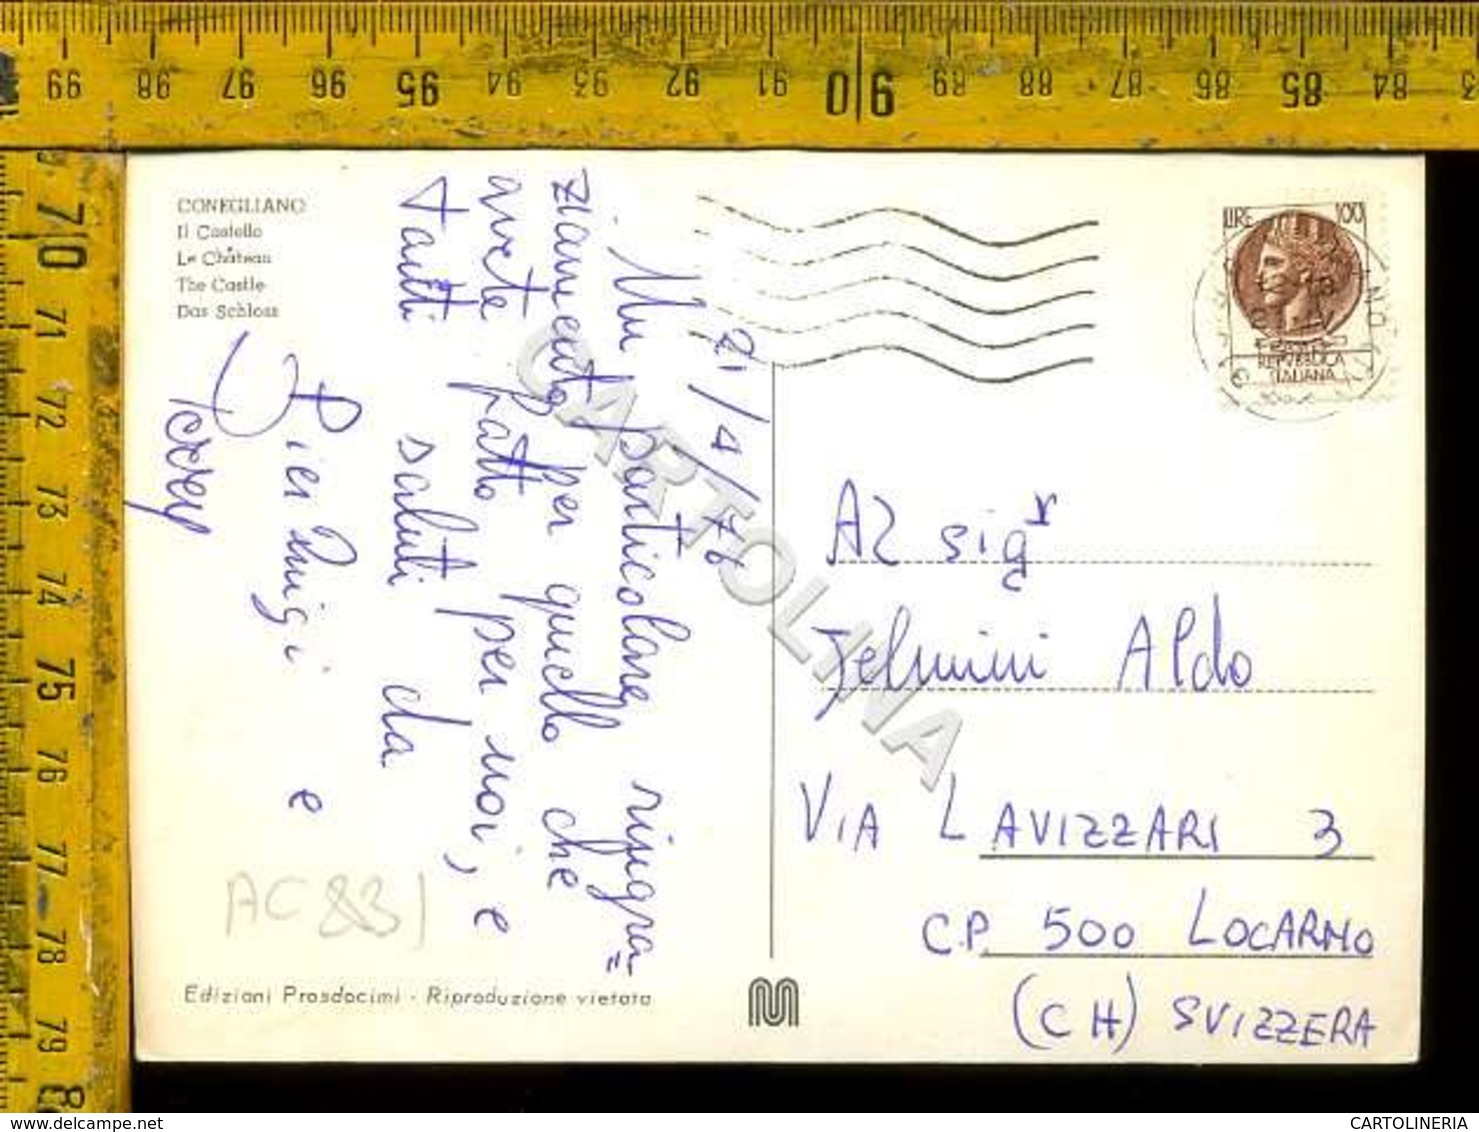 99 98 97 96 95 94 93 92 91 90 89 88 87 86 85 84
70 71 72 73 74 75 76 77 78 79 80
CONEGLIANO
Il Castello
Le Château
The Castle
Das Schloss
LIRE 100
REPVBBLICA
ITALIANA
2/4/76
Un particolare ringra=
ziamento per quello che
avete fatto per noi, e
tanti saluti da
Pier Luigi e
Terry
Al sigr
Jelmini Aldo
VIA LAVIZZARI 3
C.P. 500 LOCARNO
(CH) SVIZZERA
AC831
Edizioni Prosdocimi - Riproduzione vietata
CARTOLINA
www.delcampe.net
CARTOLINERIA